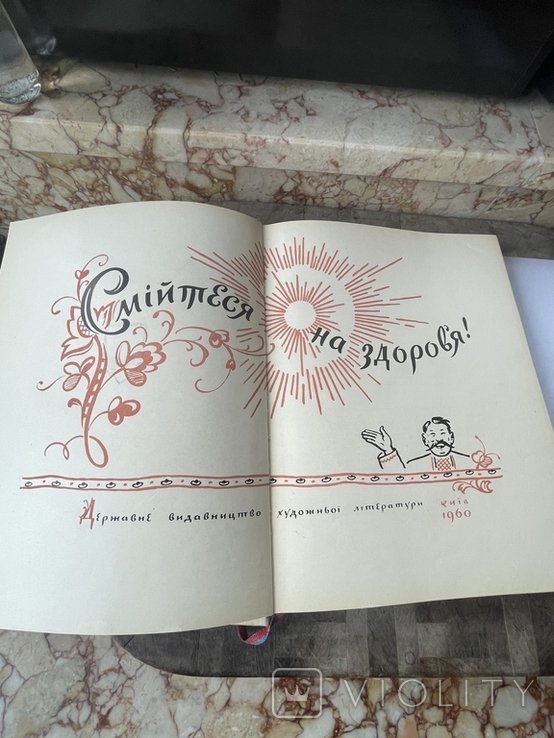 Смійтеся
на здоров'я!
Державне видавництво художньої літератури Київ
1960
VIOLITY